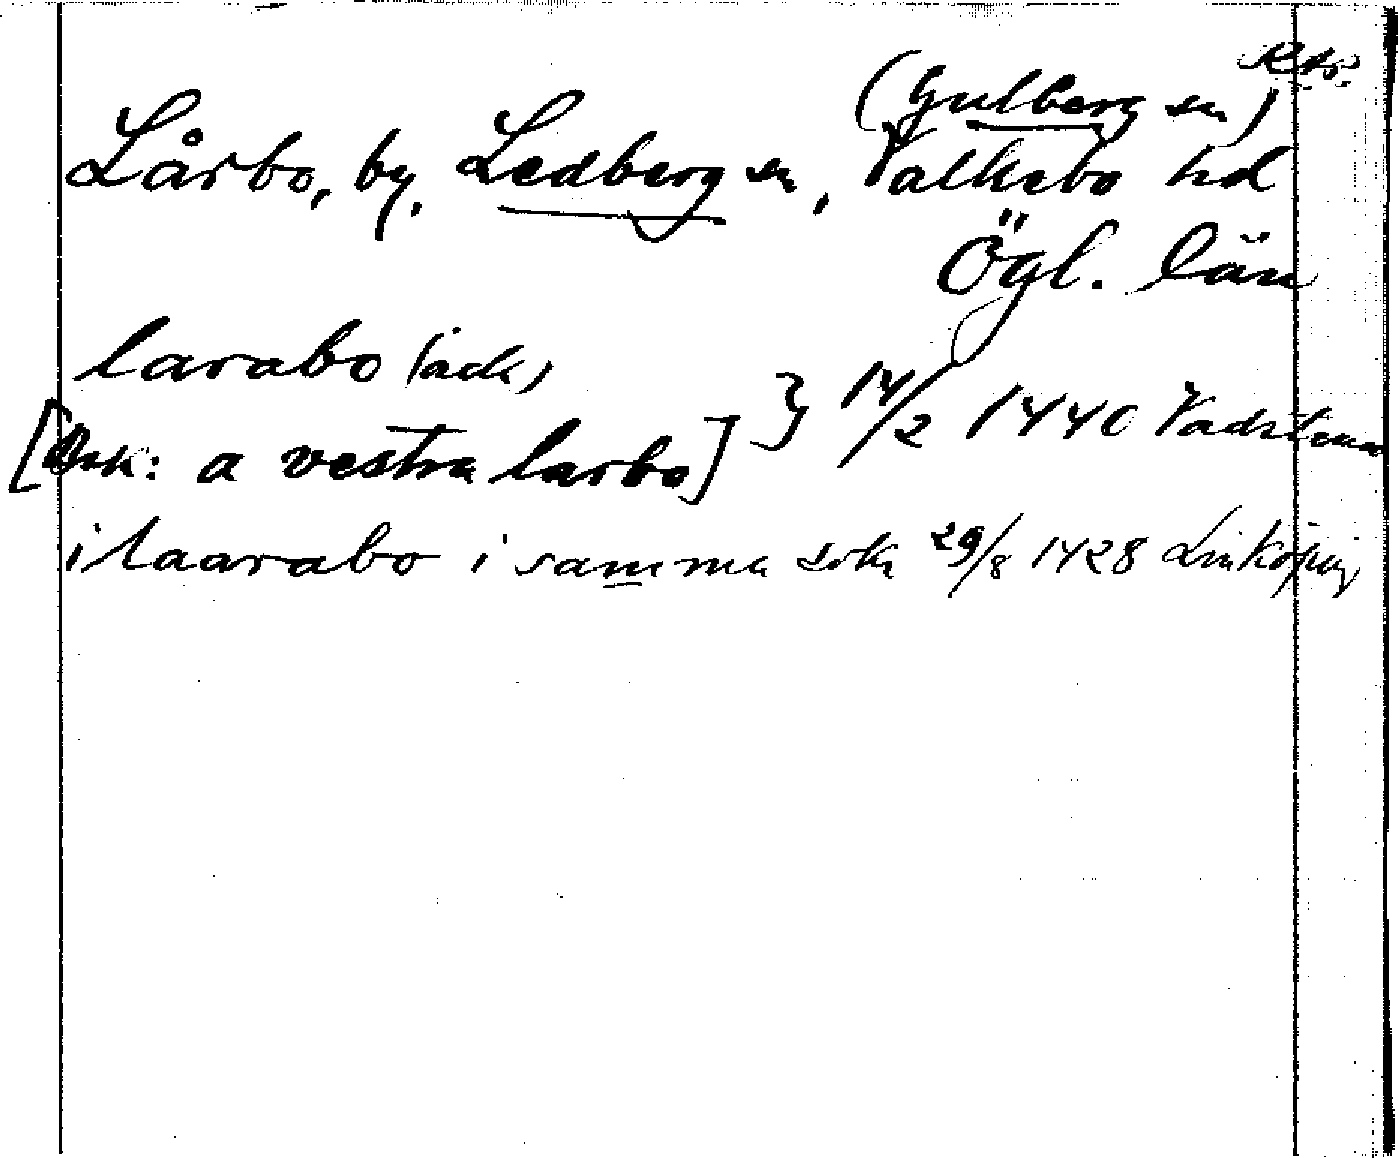 (Gulberg sn)
Lårbo, by, Ledberg sn, Valkebo hd
Ögl. län
larabo (ack)
[Dsk: a vestra larbo] } 14/2 1440 Vadstena
i laarabo i samma sokn 29/8 1428 Linköping